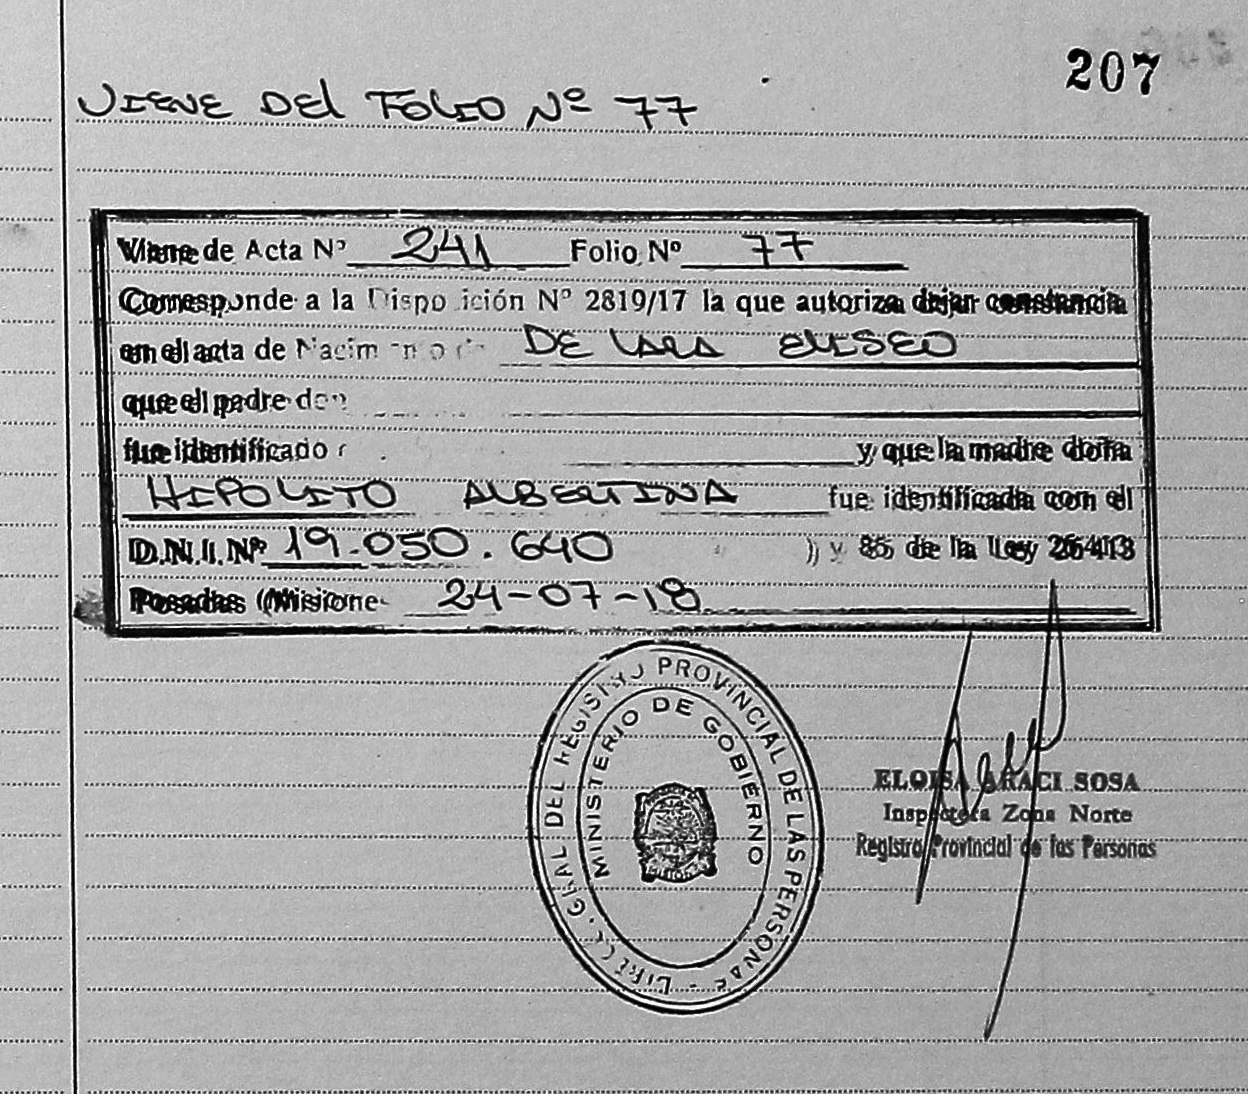 207
VIENE DEL FOLIO Nº 77
Viene de Acta Nº 241 Folio Nº 77
Corresponde a la Disposición Nº 2819/17 la que autoriza dejar constancia
en el acta de Nacimiento de DE LARA ELISEO
que el padre don
fue identificado y que la madre doña
HIPOLITO ALBERTINA fue identificada con el
D.N.I. Nº 19.050.640 ) y 85 de la Ley 26413
Posadas (Misiones 24-07-18
DIRECC. GRAL DEL REGISTRO PROVINCIAL DE LAS PERSONAS -
MINISTERIO DE GOBIERNO
ELOISA ARACI SOSA
Inspectora Zona Norte
Registro Provincial de las Personas